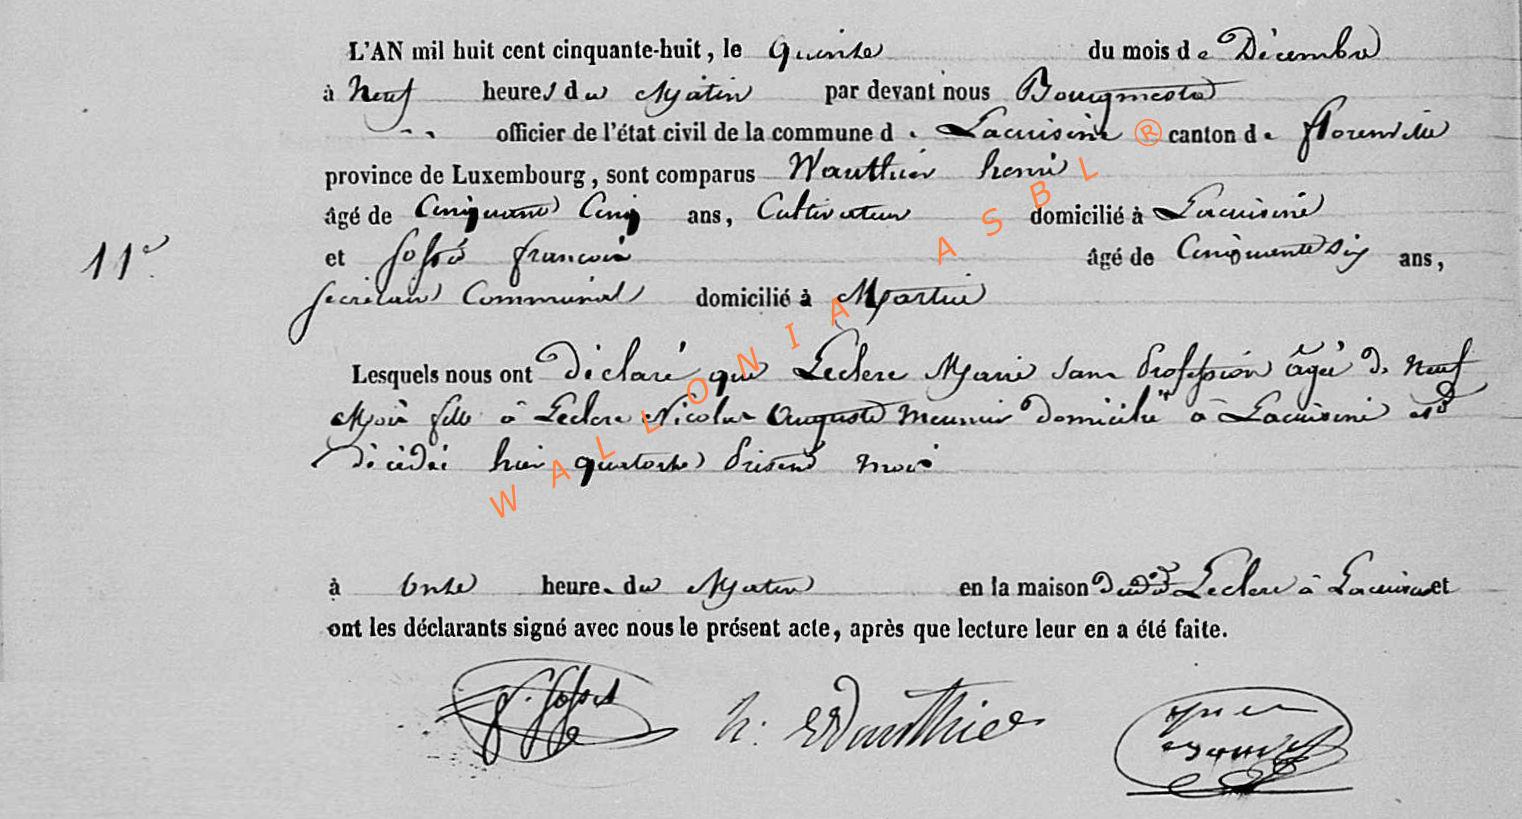 L'AN mil huit cent cinquante-huit, le quinse du mois de Décembre
à Neuf heures du Matin par devant nous Bourgmestre
officier de l'état civil de la commune de Lacuisine ® canton de florenville
province de Luxembourg, sont comparus Wauthier henri
âgé de Cinquante Cinq ans, Cultivateur domicilié à Lacuisine
11e
et françois âgé de Cinquante Six ans,
secrétaire Communal domicilié à Martué
Lesquels nous ont déclaré que Leclere Marie sans profession âgée de Neuf
Mois fille à Leclere Nicolas Auguste meunier domicilié à Lacuisine est
décédée hier quatorse présent mois
WALLONIA ASBL
à onse heure du Matin en la maison Leclere à Lacuisine et
ont les déclarants signé avec nous le présent acte, après que lecture leur en a été faite.
h. Wauthier